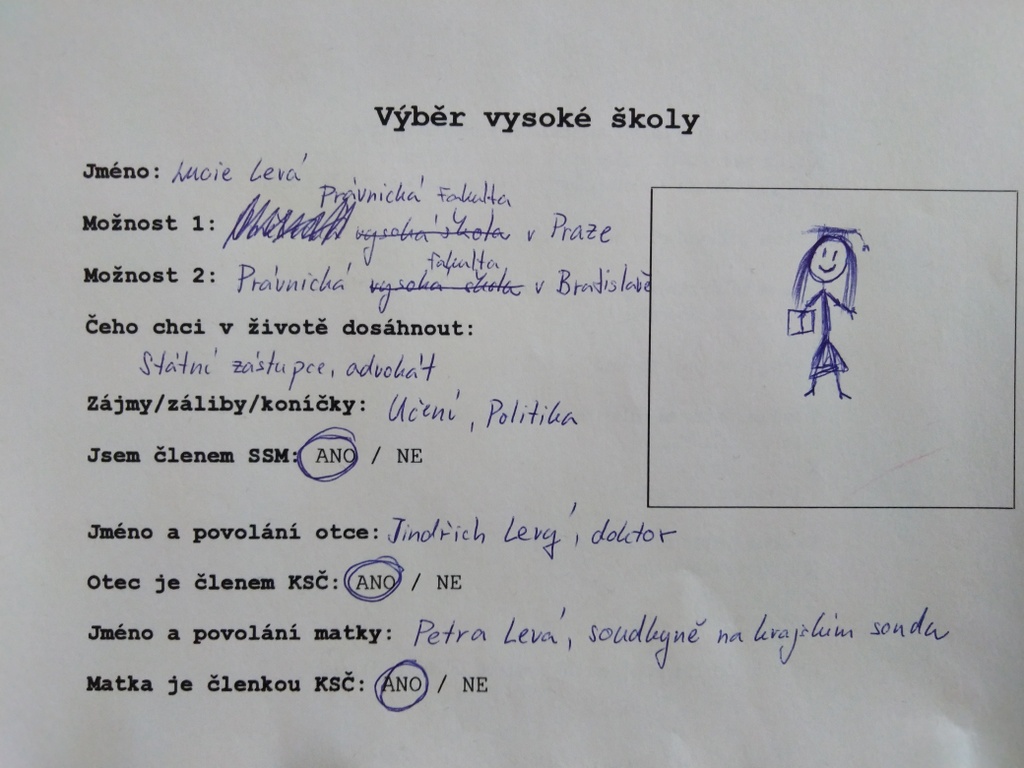 Výběr vysoké školy
Jméno: Lucie Levá
Právnická Fakulta
Možnost 1: vysoká škola v Praze
fakulta
Možnost 2: Právnická vysoká škola v Bratislavě
Čeho chci v životě dosáhnout:
Státní zástupce, advokát
Zájmy/záliby/koníčky: Učení, Politika
Jsem členem SSM: ANO / NE
Jméno a povolání otce: Jindřich Levý, doktor
Otec je členem KSČ: ANO / NE
Jméno a povolání matky: Petra Levá, soudkyně na krajském soudu
Matka je členkou KSČ: ANO / NE